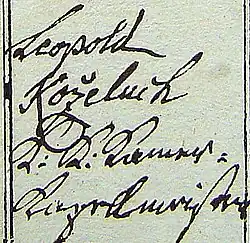 Leopold
Koželuch
K: K: Kamer=
Kapellmeister